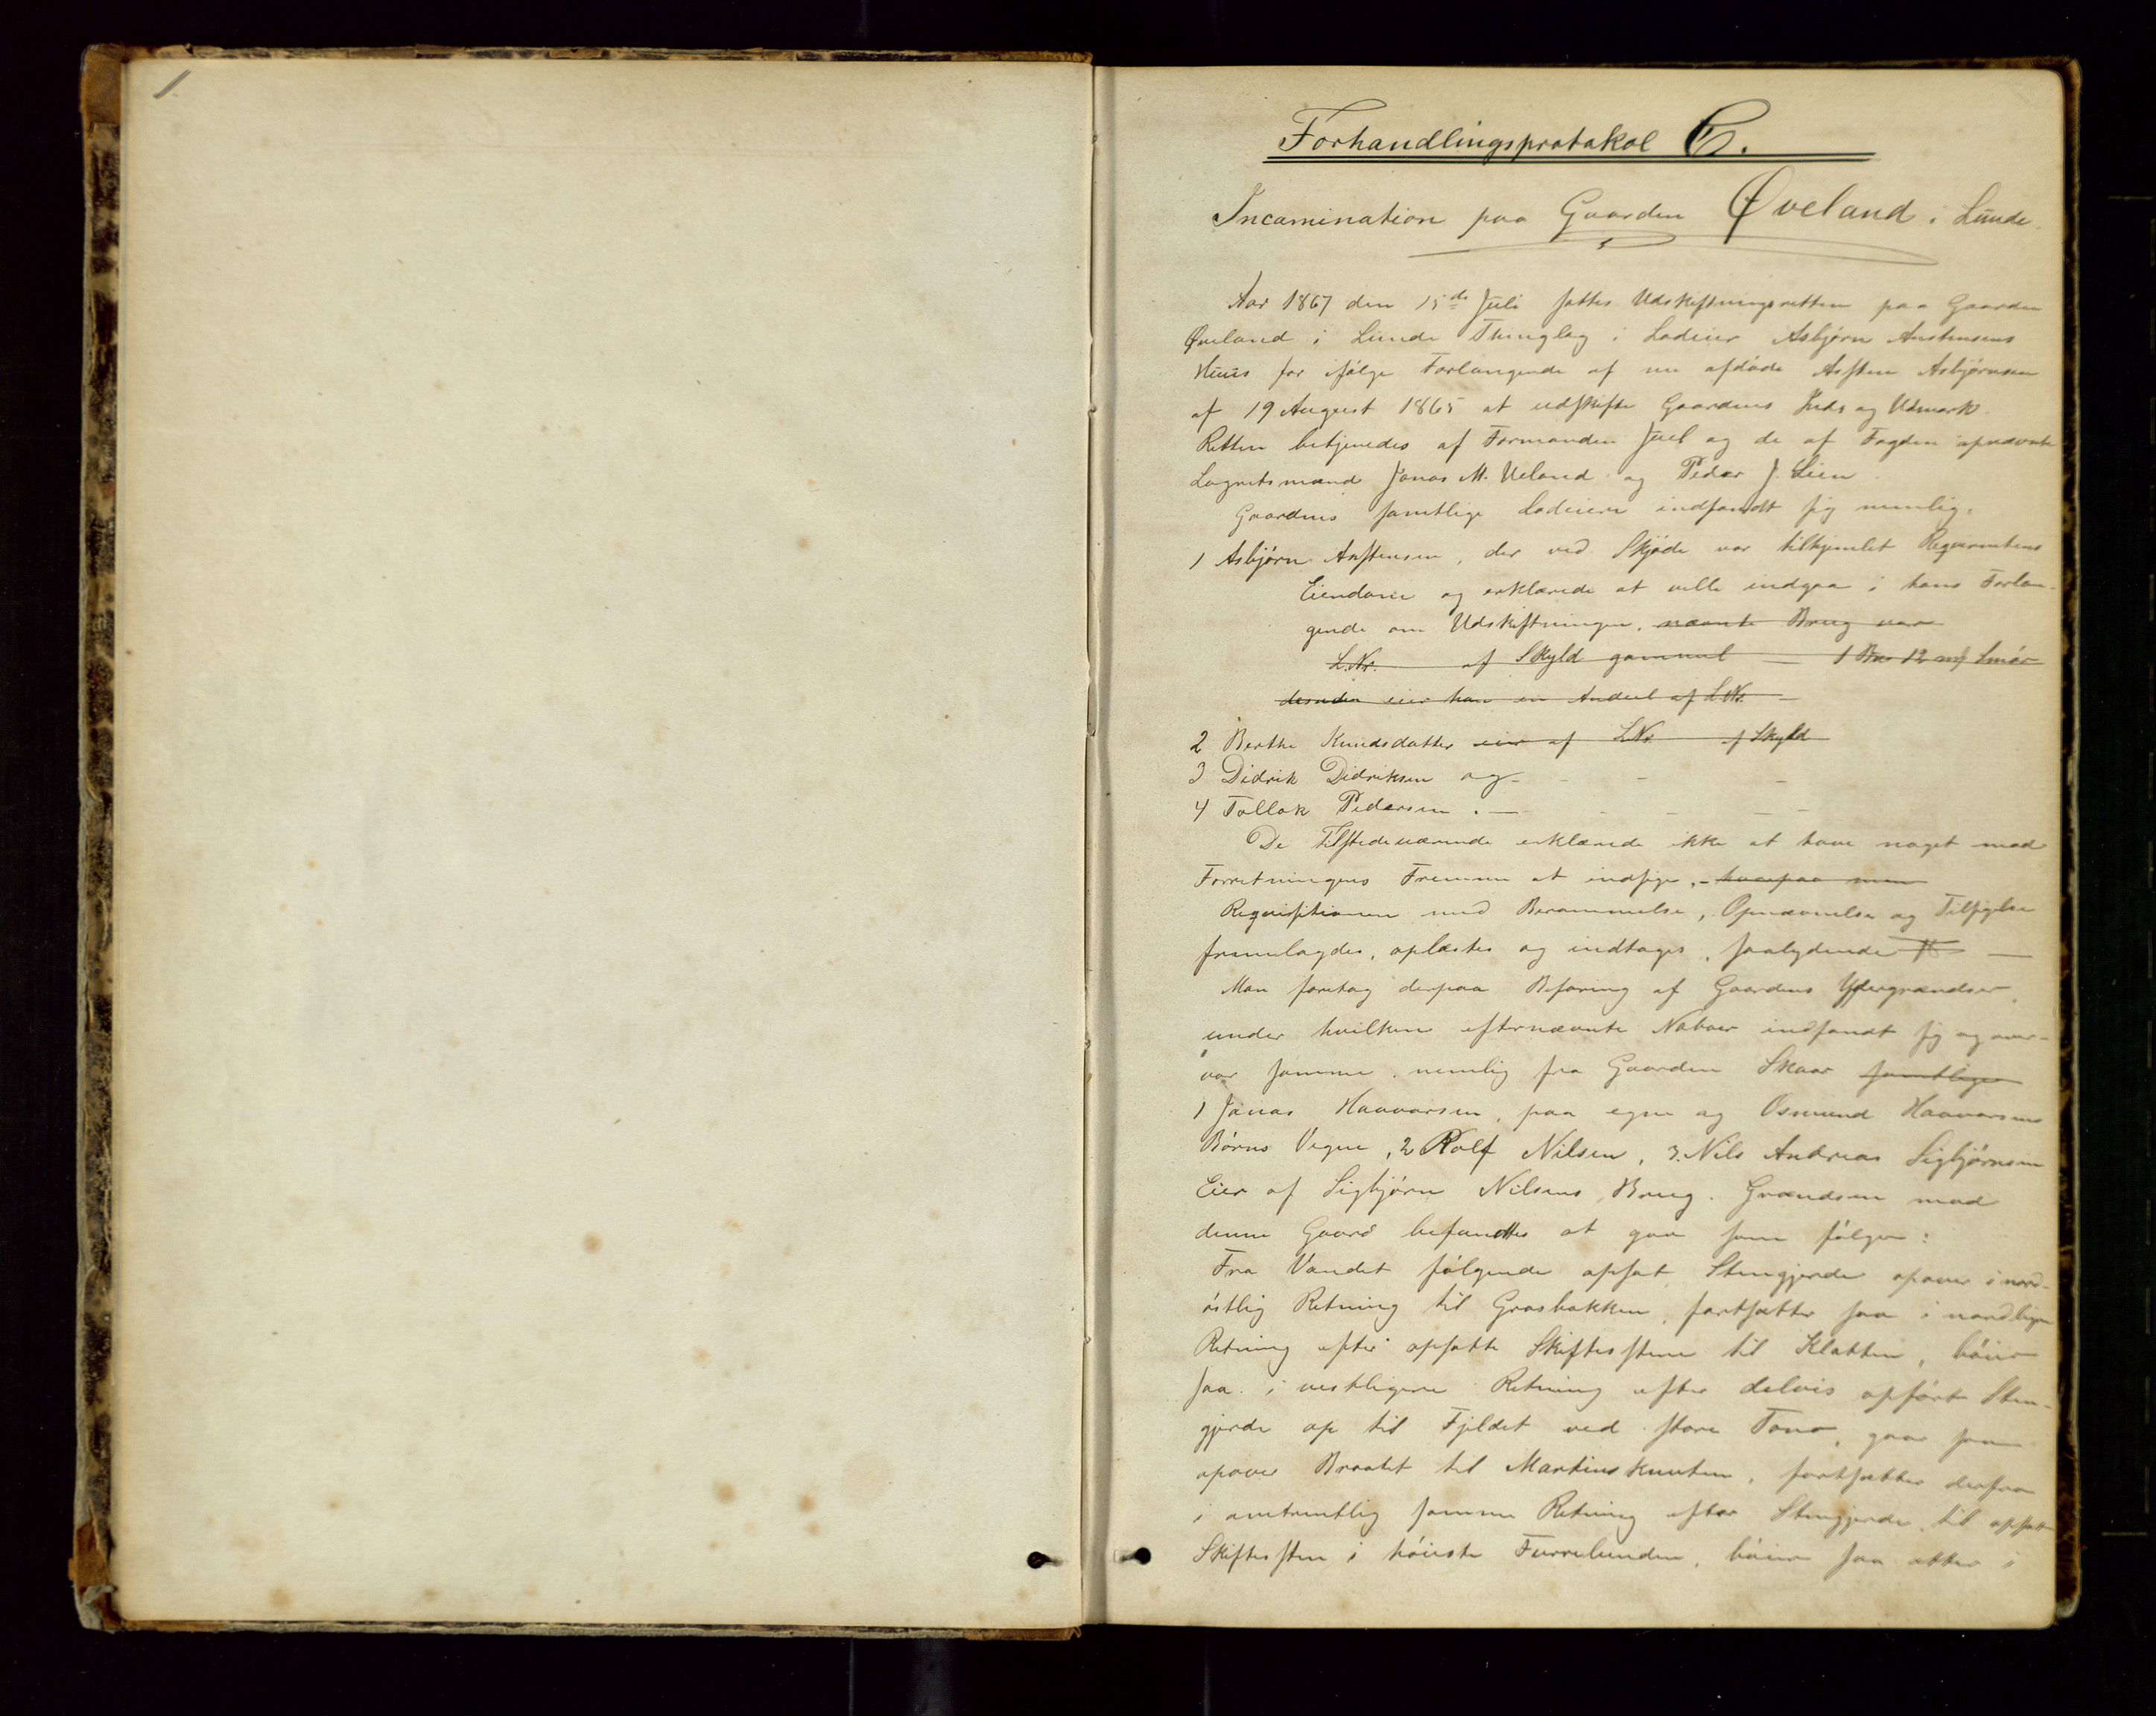 1
Forhandlingsprotokol C.
Incamination paa Gaarden Øveland i Lunde.
Aar 1867 den 15de Juli sattes Udskiftningsretten paa Gaarden
Øveland i Lunde Thinglag i Lodeier Asbjørn Austensens
Huus for ifølge Forlangende af nu afdøde Austen Asbjørnsen
af 19 August 1865 at udskifte Gaardens Inds og Udmark.
Retten betjenedes af Formanden Juel og de af Fogden opnævnte
Lagretsmænd Jonas M. Ueland og Peder J. Lien.
Gaardens samtlige Lodeiere indfandt sig nemlig:
1 Asbjørn Austensen, der ved Skjøde var tilhjemlet Reqvirentens
Eiendom og erklærede at ville indgaa i hans Forlan-
gende om Udskiftningen. nævnte Brug var
L.Nr. af Skyld gammel — 1 12 Smør
desuden eier han en Andeel af L.Nr. —
2 Berthe Knudsdatter eier af LNr af Skyld
3 Didrik Didriksen og - - -
4 Tollak Pedersen . — - - — —
De Tilstedeværende erklærede ikke at have noget mod
Forretningens Fremme at indsige, - hvorpaa man
Reqvisitionen med Berammelse, Opnævnelse og Tilsigelse
fremlagdes, oplæstes og indtages, saalydende —
Man foretog derpaa Befaring af Gaardens Ydergrændser,
under hvilken efternævnte Naboer indfandt sig og over-
var samme, nemlig fra Gaarden Skaar samtlige
1 Jonas Haavorsen, paa egne og Osmund Haavorsens
Børns Vegne, 2 Rolf Nilsen, 3. Nils Andreas Sigbjørnsen
Eier af Sigbjørn Nilsens Brug. Grændsen mod
denne Gaard befandtes at gaa som følger:
Fra Vandet følgende opsat Stengjerde opover i nord-
østlig Retning til Grasbakken, fortsætter saa i nordlige
Retning efter opsatte Skiftesstene til Klatten, bøier
saa i vestligere Retning efter delvis opført Sten-
gjerde op til Fjeldet ved store Tono, gaar saa
opover Braatet til Martinsknuten, fortsætter derfra
i omtrentlig samme Retning efter Stengjerde til opsatte
Skiftessten i høieste Furrelunden, bøier saa atter i